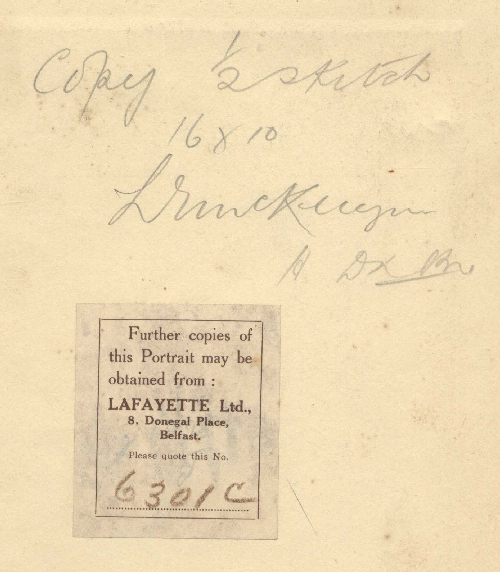 Copy 1/2 sketch
16 x 10
Further copies of
this Portrait may be
obtained from :
LAFAYETTE Ltd.,
8. Donegal Place,
Belfast.
Please quote this No.
6301 C